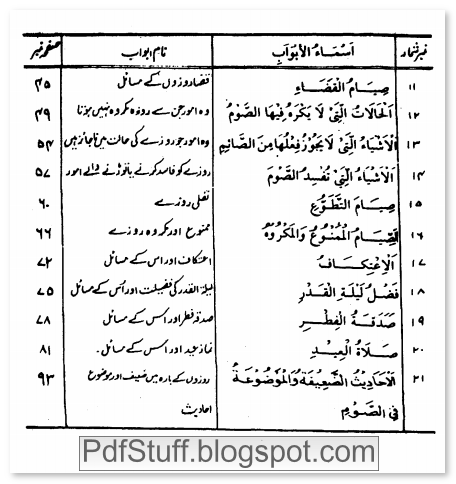 نمبر شمار اَسْمَاءُ الْاَبْوَابِ نام ابواب صفحہ نمبر
۱۱ صِيَامُ الْقَضَاءِ قضا روزوں کے مسائل ۴۵
۱۲ اَلْحَالَاتُ الَّتِيْ لَا يَكْرَهُ فِيْهَا الصَّوْمُ وہ امور جن سے روزہ مکروہ نہیں ہوتا ۴۹
۱۳ اَلْاَشْيَاءُ الَّتِيْ لَا يَجُوْزُ فِعْلُهَا مِنَ الصَّائِمِ وہ امور جو روزے کی حالت میں ناجائز ہیں ۵۴
۱۴ اَلْاَشْيَاءُ الَّتِيْ تُفْسِدُ الصَّوْمَ روزے کو فاسد کرنے یا توڑنے والے امور ۵۷
۱۵ صِيَامُ التَّطَوُّعِ نفلی روزے ۶۰
۱۶ اَلصِّيَامُ الْمَمْنُوْعُ وَالْمَكْرُوْهُ ممنوع اور مکروہ روزے ۶۶
۱۷ اَلْاِعْتِكَافُ اعتکاف اور اس کے مسائل ۷۲
۱۸ فَضْلُ لَيْلَةِ الْقَدْرِ لیلۃ القدر کی فضیلت اور اس کے مسائل ۷۵
۱۹ صَدَقَةُ الْفِطْرِ صدقہ فطر اور اس کے مسائل ۷۸
۲۰ صَلَاةُ الْعِيْدِ نماز عید اور اس کے مسائل۔ ۸۱
۲۱ اَلْاَحَادِيْثُ الضَّعِيْفَةُ وَالْمَوْضُوْعَةُ روزوں کے بارہ میں ضعیف اور موضوع ۹۳
فِي الصَّوْمِ احادیث
PdfStuff.blogspot.com